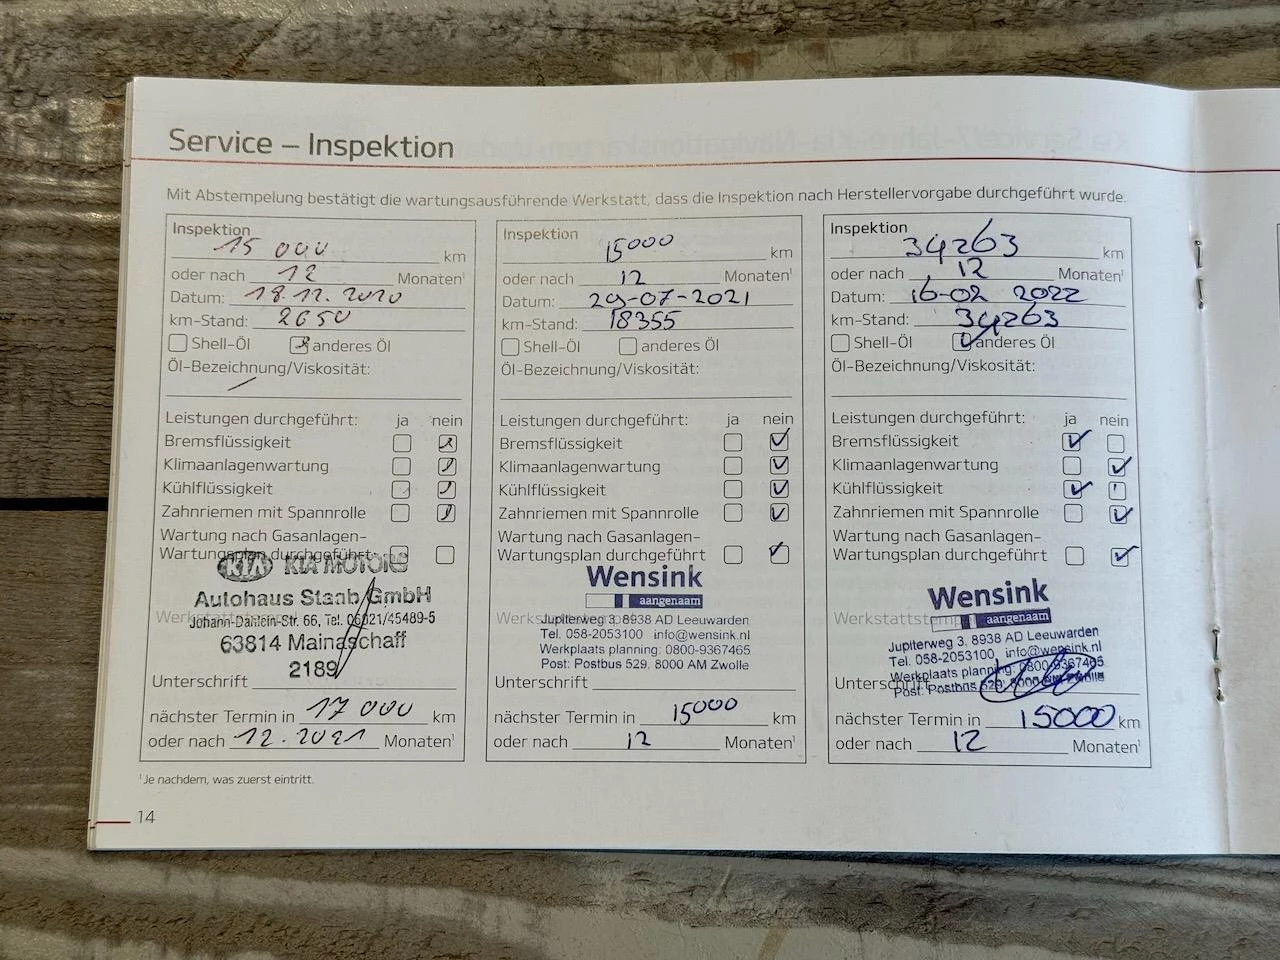 Service – Inspektion
Mit Abstempelung bestätigt die wartungsausführende Werkstatt, dass die Inspektion nach Herstellervorgabe durchgeführt wurde.
Inspektion
15 000 km
oder nach 12 Monaten¹
Datum: 18.12.2020
km-Stand: 2650
Shell-Öl anderes Öl
Öl-Bezeichnung/Viskosität:
Leistungen durchgeführt: ja nein
Bremsflüssigkeit
Klimaanlagenwartung
Kühlflüssigkeit
Zahnriemen mit Spannrolle
Wartung nach Gasanlagen-
Wartungsplan durchgeführt
KIA KIA MOTORS
Autohaus Staab GmbH
Johann-Dahlem-Str. 66, Tel. 06021/45489-5
63814 Mainaschaff
2189
Unterschrift
nächster Termin in 17 000 km
oder nach 12.2021 Monaten¹
Inspektion
15000 km
oder nach 12 Monaten¹
Datum: 29-07-2021
km-Stand: 18355
Shell-Öl anderes Öl
Öl-Bezeichnung/Viskosität:
Leistungen durchgeführt: ja nein
Bremsflüssigkeit
Klimaanlagenwartung
Kühlflüssigkeit
Zahnriemen mit Spannrolle
Wartung nach Gasanlagen-
Wartungsplan durchgeführt
Wensink
aangenaam
Jupiterweg 3, 8938 AD Leeuwarden
Tel. 058-2053100 info@wensink.nl
Werkplaats planning: 0800-9367465
Post: Postbus 529, 8000 AM Zwolle
Unterschrift
nächster Termin in 15000 km
oder nach 12 Monaten¹
Inspektion
34263 km
oder nach 12 Monaten¹
Datum: 16-02 2022
km-Stand: 34263
Shell-Öl anderes Öl
Öl-Bezeichnung/Viskosität:
Leistungen durchgeführt: ja nein
Bremsflüssigkeit
Klimaanlagenwartung
Kühlflüssigkeit
Zahnriemen mit Spannrolle
Wartung nach Gasanlagen-
Wartungsplan durchgeführt
Wensink
aangenaam
Werkstattstempel
Jupiterweg 3, 8938 AD Leeuwarden
Tel. 058-2053100 info@wensink.nl
Werkplaats planning: 0800-9367465
Post: Postbus 529, 8000 AM Zwolle
Unterschrift
nächster Termin in 15000 km
oder nach 12 Monaten¹
¹Je nachdem, was zuerst eintritt.
14